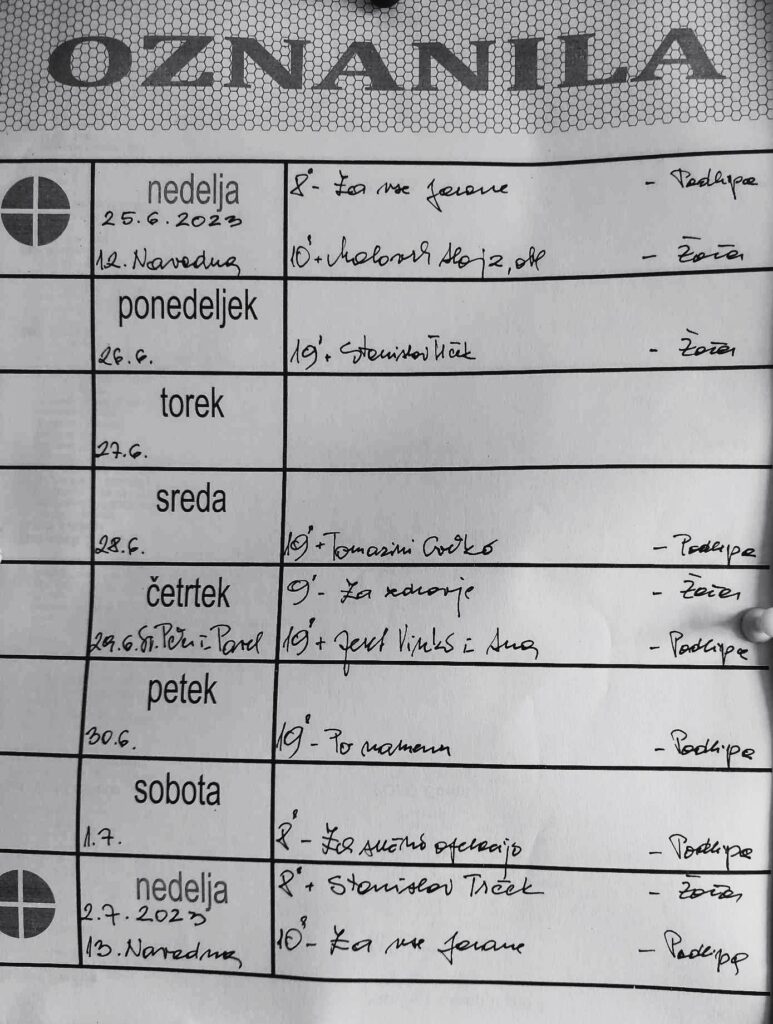 OZNANILA
nedelja 8° - Za vse farane - Podlipa
25.6.2023
12. Navadna 10° + Alojz, - Žažar
ponedeljek
26.6. 19° + Stanislav Trček - Žažar
torek
27.6.
sreda
28.6. 19° + Tomazini - Podlipa
četrtek 9° - Za zdravje - Žažar
29.6. Sv. Peter i Pavel 19° + i Ana - Podlipa
petek
30.6. 19° - Po namenu - Podlipa
sobota
1.7. 8° - Za srečno operacijo - Podlipa
nedelja 8° + Stanislav Trček - Žažar
2.7.2023
13. Navadna 10° - Za vse farane - Podlipa